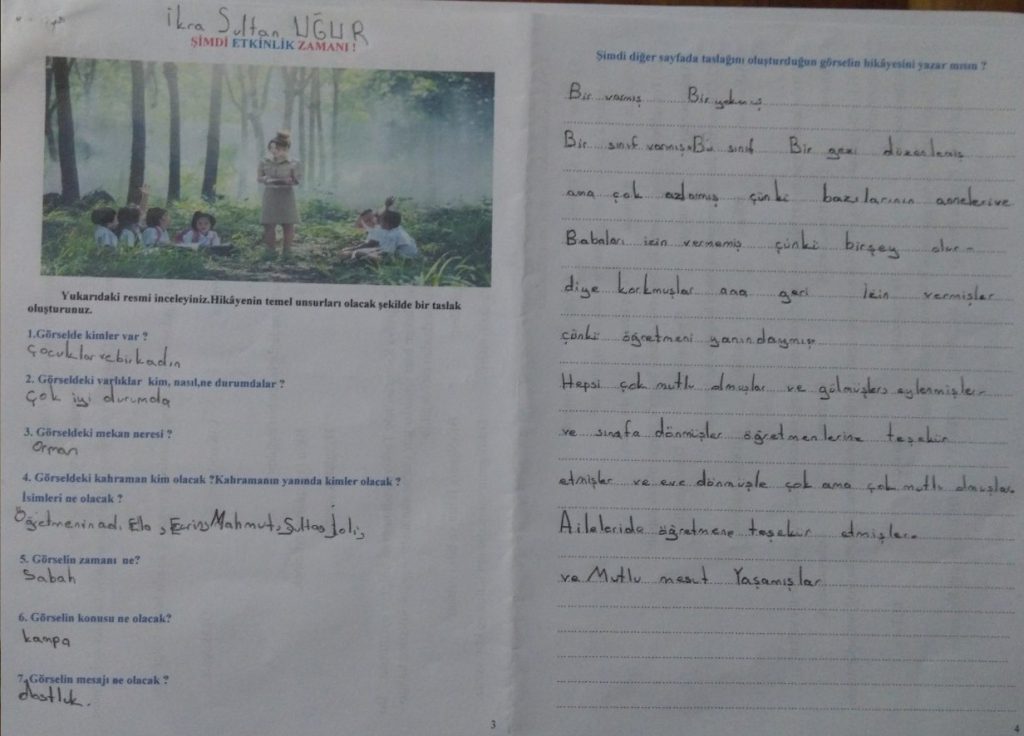 İkra Sultan UĞUR
ŞİMDİ ETKİNLİK ZAMANI !
Yukarıdaki resmi inceleyiniz.Hikâyenin temel unsurları olacak şekilde bir taslak
oluşturunuz.
1.Görselde kimler var ?
Çocuklar ve bir kadın
2. Görseldeki varlıklar kim, nasıl,ne durumdalar ?
Çok iyi durumda
3. Görseldeki mekan neresi ?
Orman
4. Görseldeki kahraman kim olacak ?Kahramanın yanında kimler olacak ?
İsimleri ne olacak ?
Öğretmenin adı Ela, Ecrin, Mahmut, Sultan,
5. Görselin zamanı ne?
Sabah
6. Görselin konusu ne olacak?
kampa
7. Görselin mesajı ne olacak ?
dostluk.
3
Şimdi diğer sayfada taslağını oluşturduğun görselin hikâyesini yazar mısın ?
Bir varmış Bir yokmuş
Bir sınıf varmış. Bu sınıf Bir gezi düzenlemiş
ama çok azlarmış çünki bazılarının anneleri ve
Babaları izin vermemiş çünki birşey olur
diye korkmuşlar ama geri izin vermişler
çünki öğretmeni yanındaymış
Hepsi çok mutlu olmuşlar ve gülmüşler, eylenmişler
ve sınıfa dönmişler öğretmenlerine teşekür
etmişler ve eve dönmüşle çok ama çok mutlu olmuşlar.
Aileleride öğretmene teşekür etmişler.
ve Mutlu mesut Yaşamışlar
4